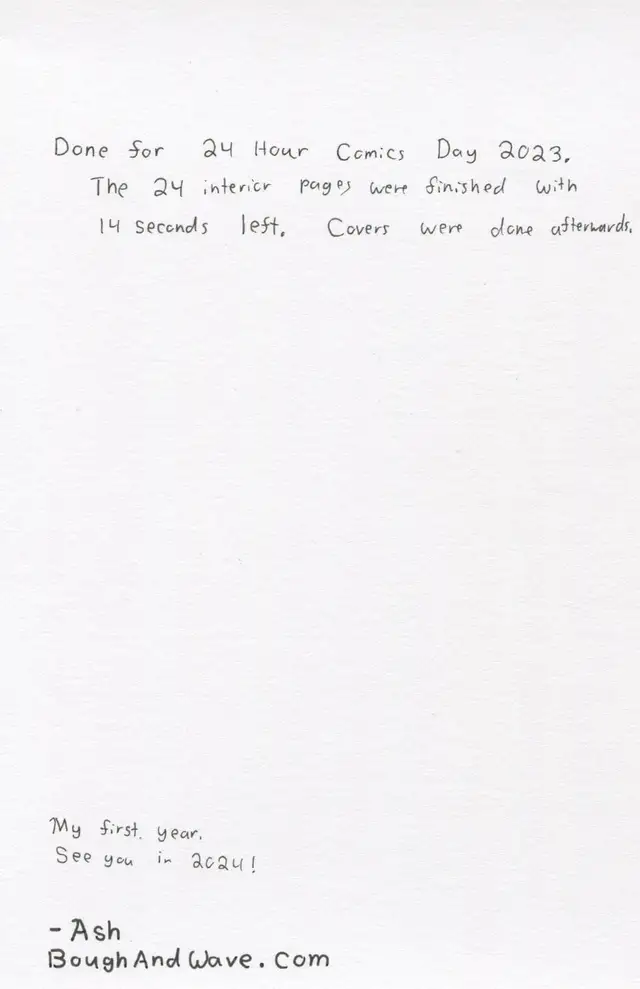 Done for 24 Hour Comics Day 2023.
The 24 interior pages were finished with
14 seconds left. Covers were done afterwards.
My first year.
See you in 2024!
- Ash
BoughAndWave.Com